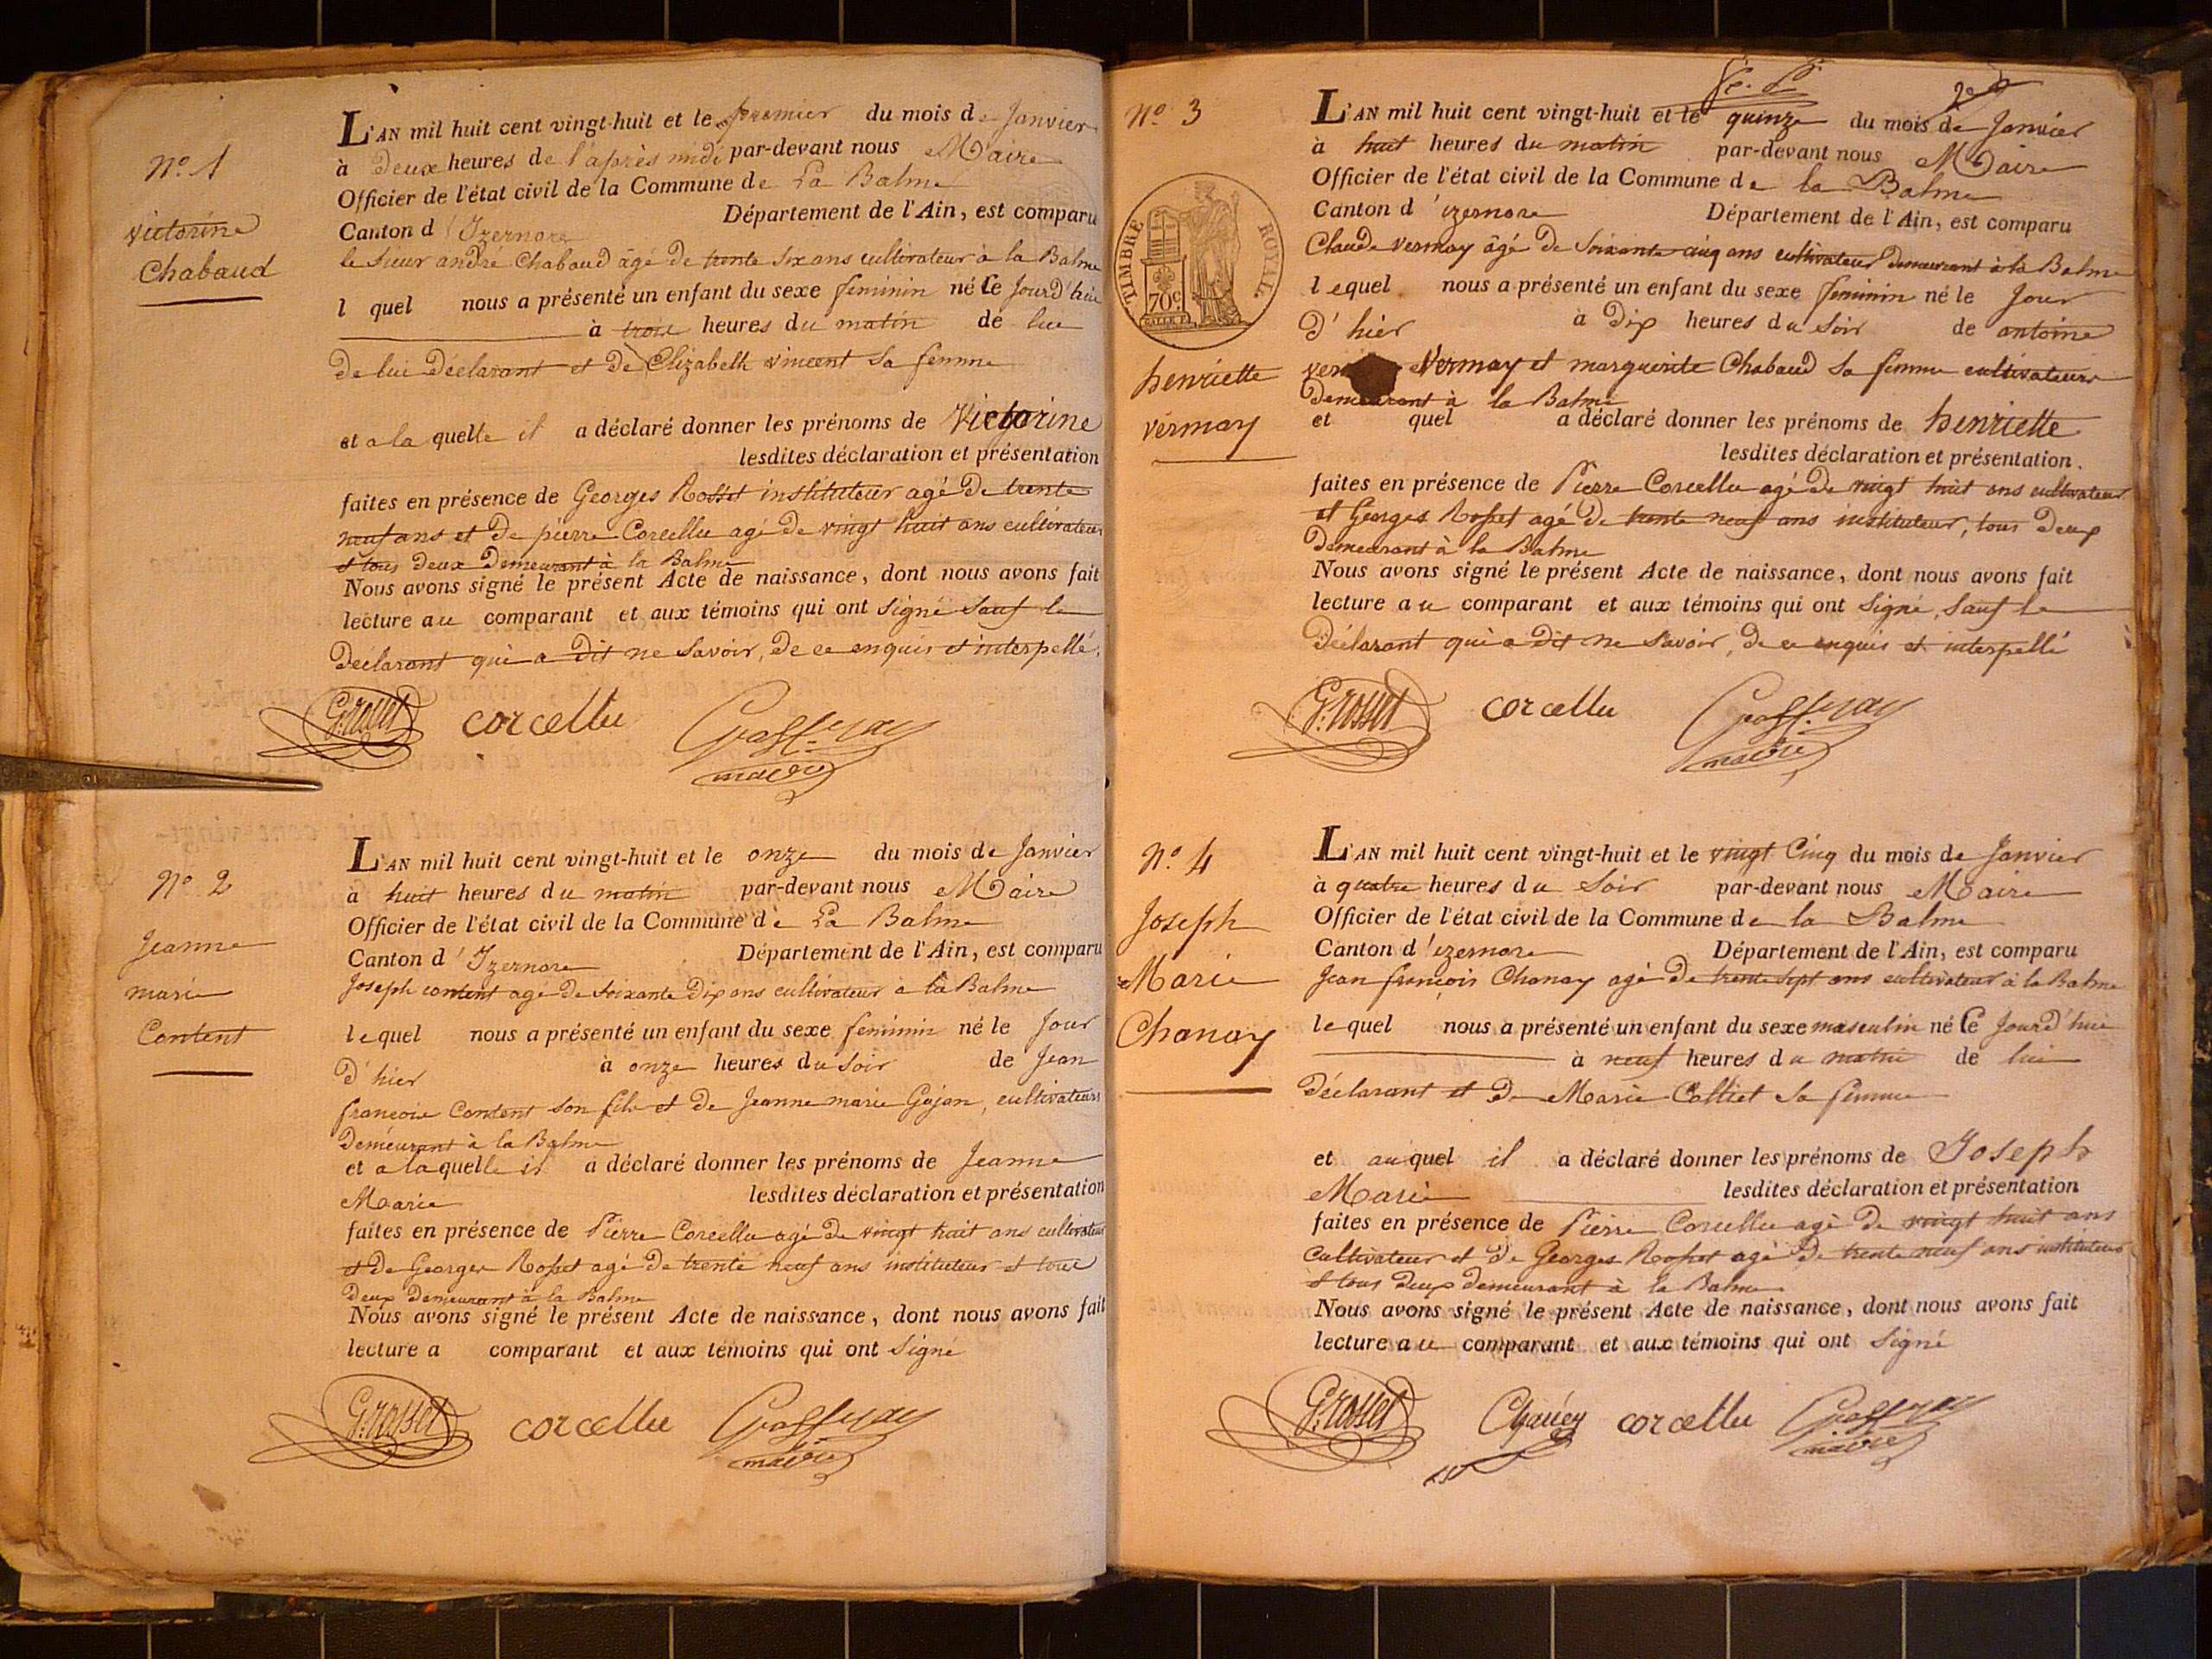 N.o 1
victorine
Chabaud
L'AN mil huit cent vingt-huit et le premier du mois de Janvier
à Deux heures de l'après midi par-devant nous Maire
Officier de l'état civil de la Commune de La Balme
Canton d'Izernore Département de l'Ain, est comparu
le Sieur andré Chabaud âgé de trente six ans cultivateur à la Balme
l quel nous a présenté un enfant du sexe feminin né Ce Jourd'hui
à trois heures du matin de lui
De lui Déclarant et De Elizabeth vincent Sa femme
et a la quelle il a déclaré donner les prénoms de Victorine
lesdites déclaration et présentation
faites en présence de Georges Rosset instituteur agé De trente
neuf ans et De pierre Corcellu agé de vingt huit ans cultivateur
et tous deux Demeurant à la Balme
Nous avons signé le présent Acte de naissance, dont nous avons fait
lecture au comparant et aux témoins qui ont signé Sauf le
Déclarant qui a Dit ne Savoir, De ce enquis et interpellé.
G. rosset corcellu
maire
N.o 2
Jeanne
marie
Content
L'AN mil huit cent vingt-huit et le onze du mois de Janvier
à huit heures du matin par-devant nous Maire
Officier de l'état civil de la Commune de La Balme
Canton d'Izernore Département de l'Ain, est comparu
Joseph content agé De Soixante Dix ans cultivateur a la Balme
lequel nous a présenté un enfant du sexe feminin né le Jour
D'hier à onze heures du Soir de Jean
françois Content son fils et De Jeanne marie Gojon, cultivateurs
Demeurant à la Balme
et a laquelle il a déclaré donner les prénoms de Jeanne
Marie lesdites déclaration et présentation
faites en présence de Pierre Corcellu agé De vingt huit ans cultivateur
et De Georges Rosset agé De trente neuf ans instituteur et tous
Deux Demeurant à la Balme
Nous avons signé le présent Acte de naissance, dont nous avons fait
lecture a comparant et aux témoins qui ont Signé
G. rosset corcellu
maire
N.o 3
TIMBRE ROYAL
70c
henriette
vermay
L'AN mil huit cent vingt-huit et le quinze du mois de Janvier
à huit heures du matin par-devant nous Maire
Officier de l'état civil de la Commune de la Balme
Canton d'izernore Département de l'Ain, est comparu
Claude vermay âgé De Soixante cinq ans cultivateur Demeurant à la Balme
lequel nous a présenté un enfant du sexe feminin né le Jour
D'hier à Dix heures du Soir de antoine
Vermay et marguerite Chabaud Sa femme cultivateurs
Demeurant à la Balme
et quel a déclaré donner les prénoms de henriette
lesdites déclaration et présentation.
faites en présence de Pierre Corcellu agé De vingt huit ans cultivateur
et Georges Rosset agé De trente neuf ans instituteur, tous Deux
Demeurant à la Balme
Nous avons signé le présent Acte de naissance, dont nous avons fait
lecture au comparant et aux témoins qui ont Signé, Sauf le
Déclarant qui a Dit ne Savoir, de ce enquis et interpellé
G. rosset corcellu
maire
N.o 4
Joseph
Marie
Chanay
L'AN mil huit cent vingt-huit et le vingt Cinq du mois de Janvier
à quatre heures du Soir par-devant nous Maire
Officier de l'état civil de la Commune de la Balme
Canton d'izernore Département de l'Ain, est comparu
Jean françois Chanay agé De trente sept ans cultivateur à la Balme
lequel nous a présenté un enfant du sexe masculin né Ce Jourd'hui
à neuf heures du matin de lui
Déclarant et De Marie Calliet Sa femme
et auquel il a déclaré donner les prénoms de Joseph
Marie lesdites déclaration et présentation
faites en présence de Pierre Corcellu agé De vingt huit ans
Cultivateur et De Georges Rosset agé De trente neuf ans instituteur
et tous Deux demeurant à la Balme
Nous avons signé le présent Acte de naissance, dont nous avons fait
lecture au comparant et aux témoins qui ont Signé
G. rosset Chaney corcellu
maire